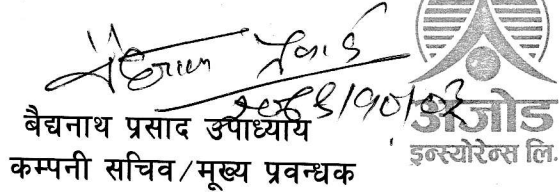 बैद्यनाथ प्रसाद उपाध्याय
कम्पनी सचिव/मूख्य प्रवन्धक
अजोड
इन्स्योरेन्स लि.